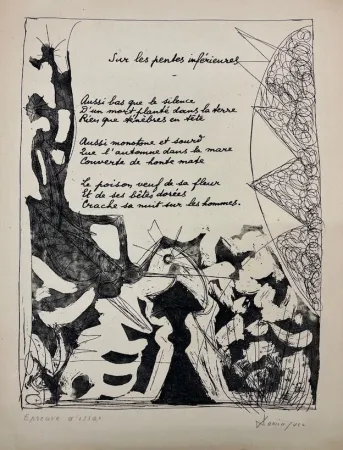 Sur les pentes inférieures
Aussi bas que le silence
D'un mort planté dans la terre
Rien que ténèbres en tête
Aussi monotone et sourd
Que l'automne dans la mare
Couverte de honte mate
Le poison veuf de sa fleur
Et de ses bêtes dorées
Crache sa nuit sur les hommes.
Epreuve d'essai